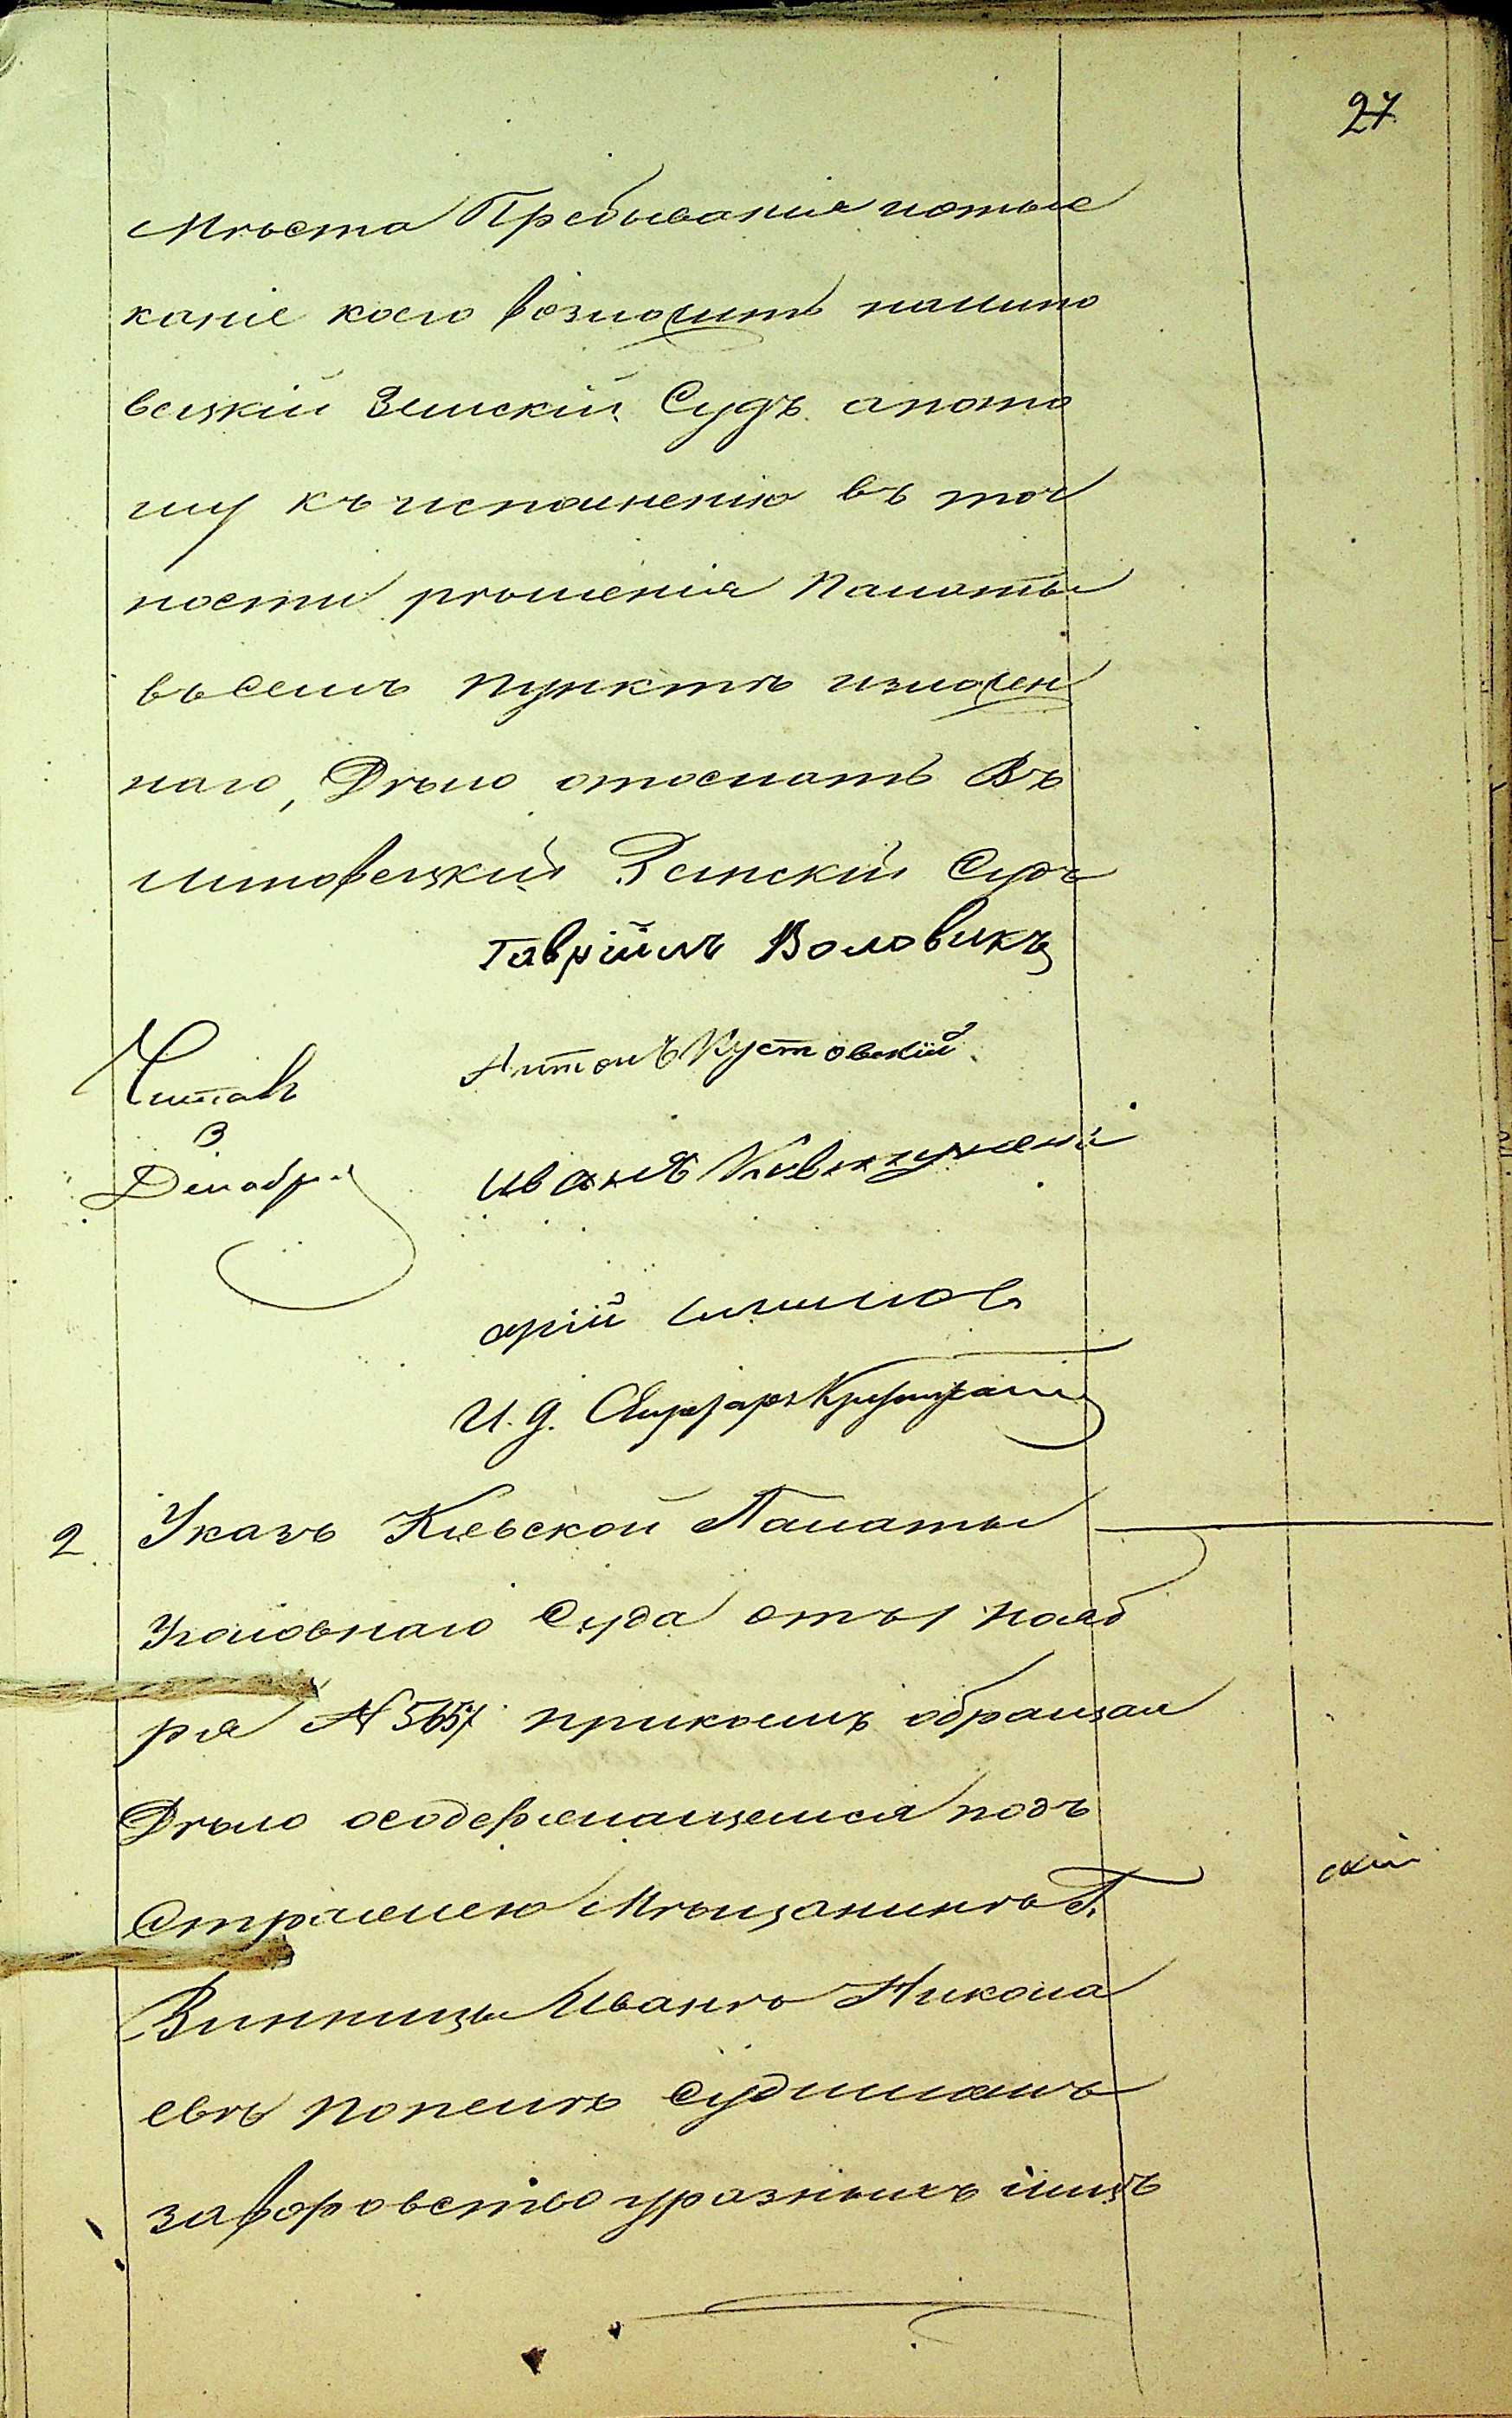 27
Мѣста Пребыванія и отыс
каніе коего возложить на Лито
вецкій Земскій Судъ а пото
му къ исполненію въ точ
ности рѣшенія Палаты
въ семъ пунктѣ изложен
наго, Дѣло отослать Въ
Литовецкій Земскій Судъ
Гавріилъ Воловикъ
Антонъ Кустовскій
Читалъ
3
Декабря
Иванъ
И. д. Секретаря
2 Указъ Кіевской Палаты
Уголовнаго Суда отъ 1 Нояб
ря № 5657 при коемъ обращая
Дѣло о содержащемся подъ
Стражею Мѣщанинѣ Г.
Винницы Иванѣ Никола
евѣ Попелѣ Судимомъ
за воровство у разныхъ лицъ